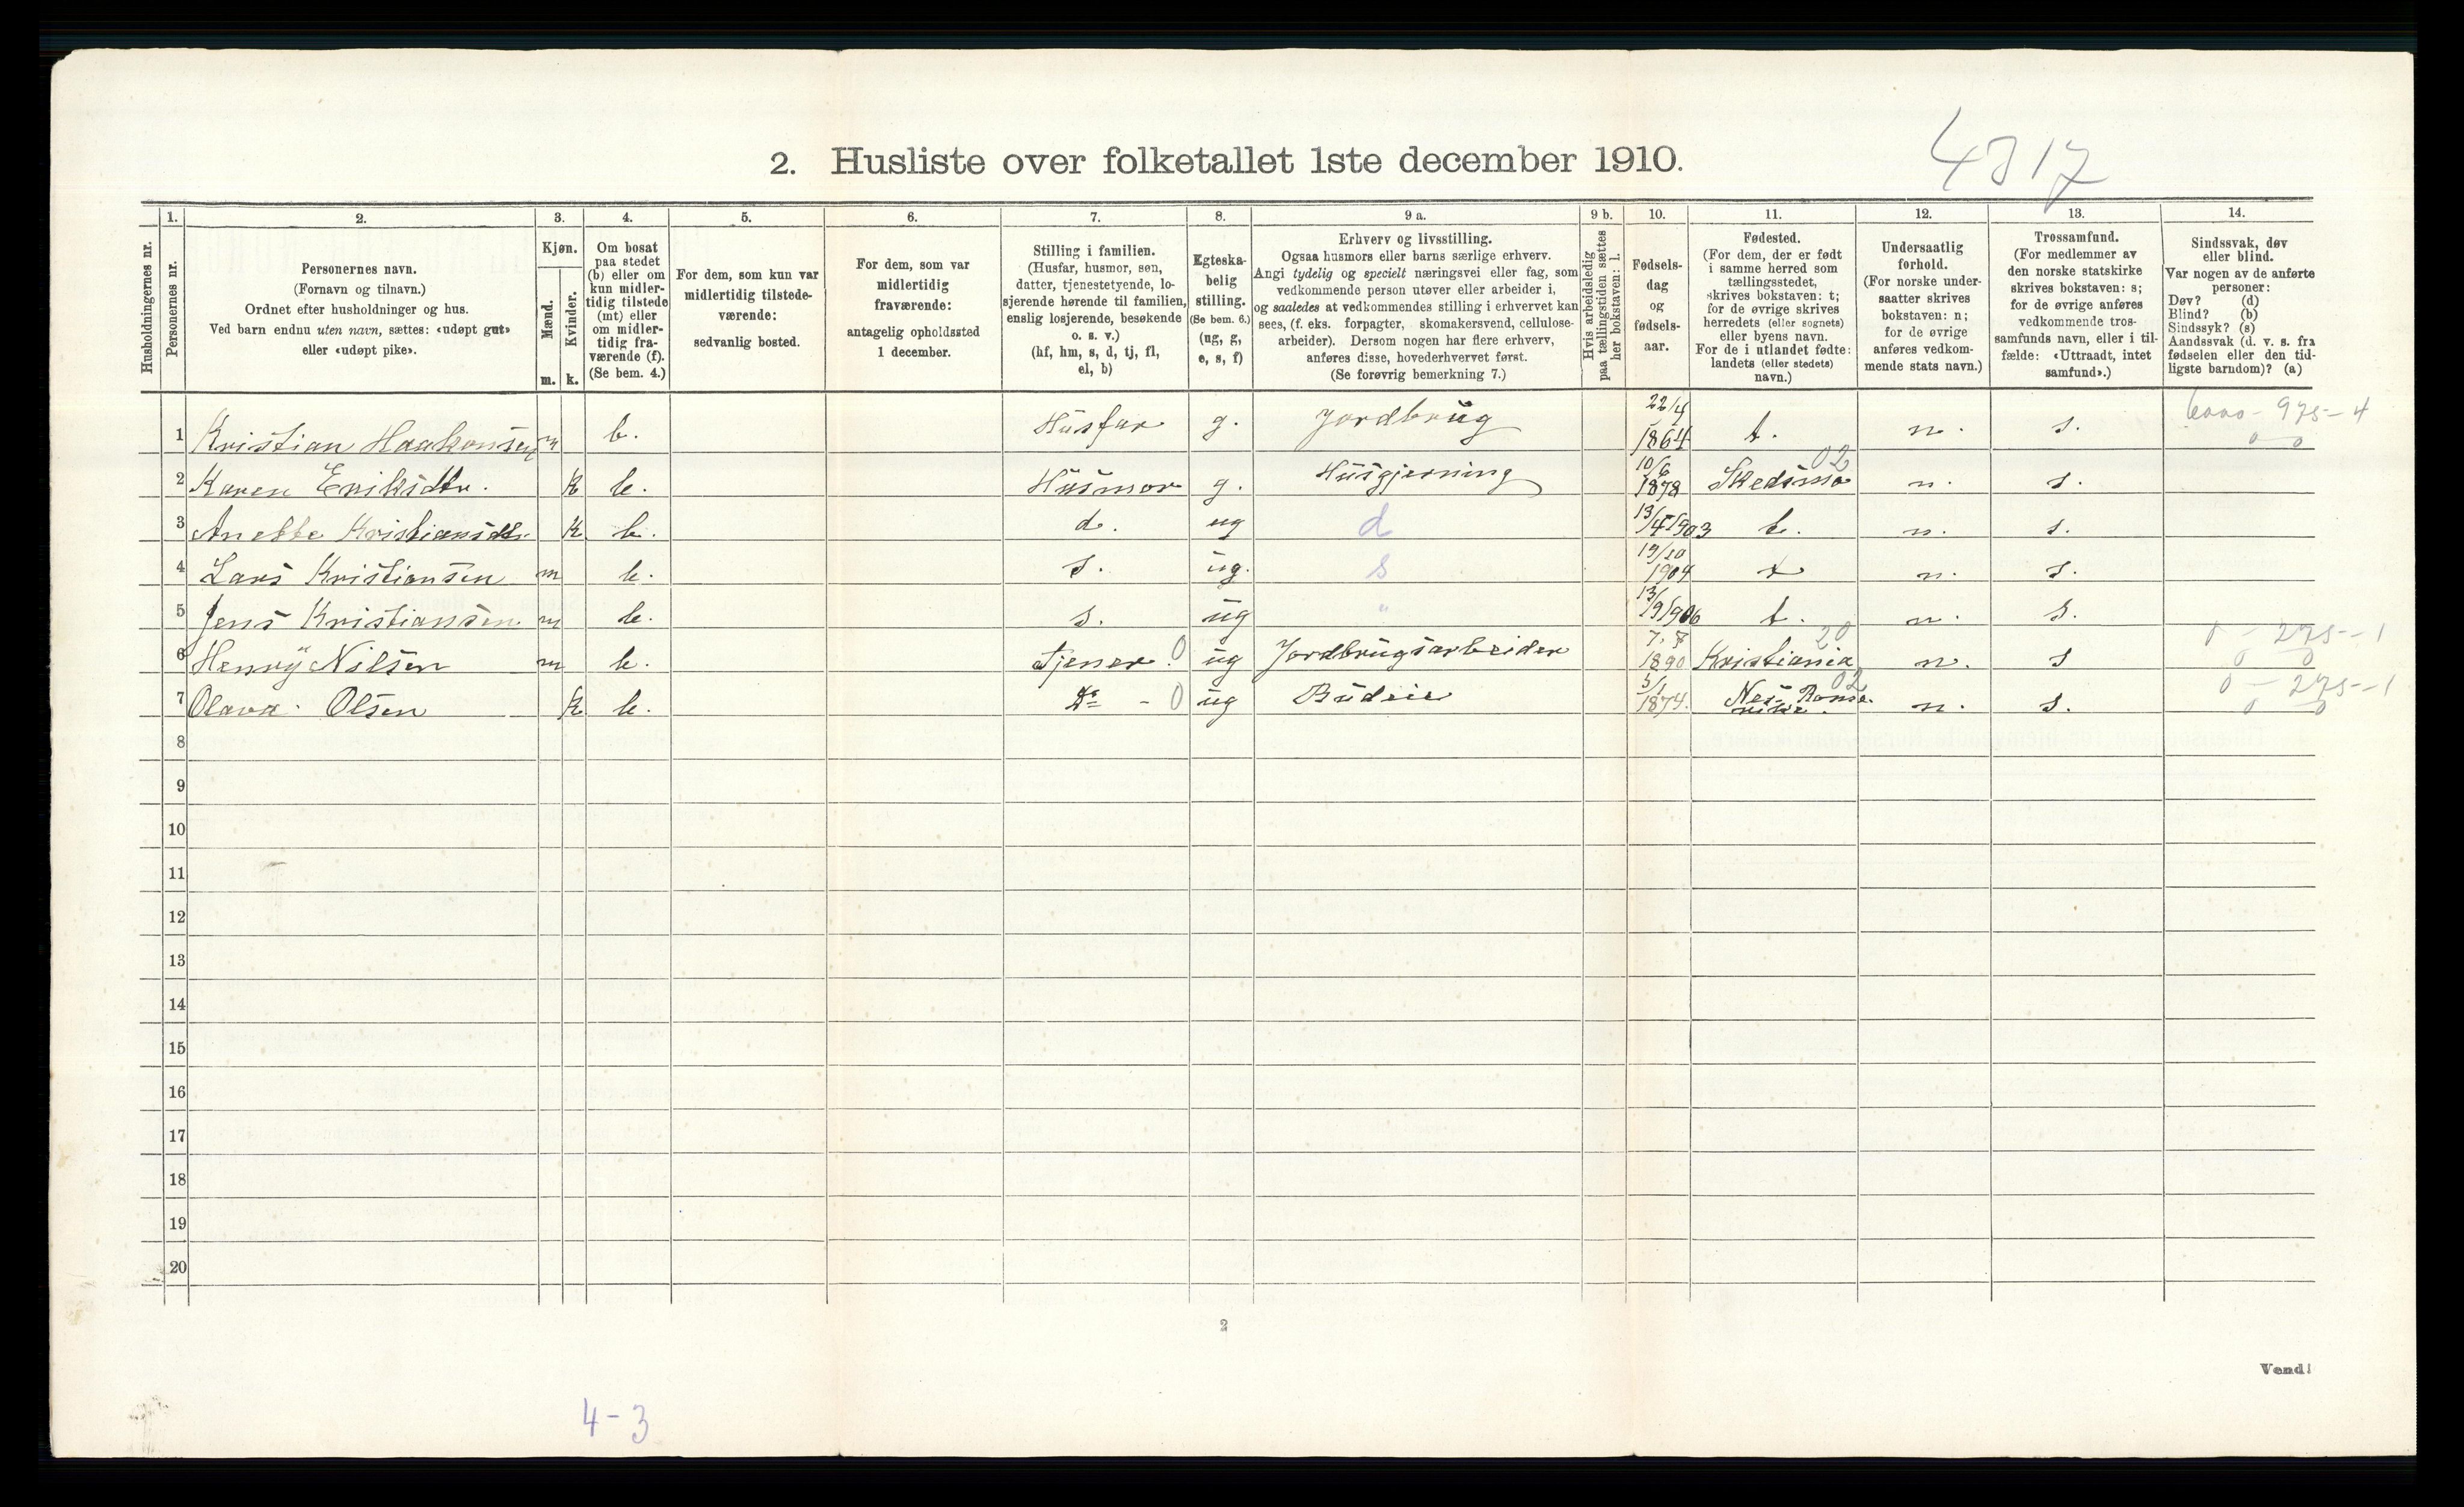 2. Husliste over folketallet 1ste december 1910.
4317
Husholdningernes nr.
1.
Personernes nr.
2.
Personernes navn.
(Fornavn og tilnavn.)
Ordnet efter husholdninger og hus.
Ved barn endnu uten navn, sættes: «udøpt gut»
eller «udøpt pike».
3.
Kjøn.
Mænd.
Kvinder.
m. k.
4.
Om bosat
paa stedet
(b) eller om
kun midler-
tidig tilstede
(mt) eller
om midler-
tidig fra-
værende (f).
(Se bem. 4.)
5.
For dem, som kun var
midlertidig tilstede-
værende:
sedvanlig bosted.
6.
For dem, som var
midlertidig
fraværende:
antagelig opholdssted
1 december.
7.
Stilling i familien.
(Husfar, husmor, søn,
datter, tjenestetyende, lo-
sjerende hørende til familien,
enslig losjerende, besøkende
o. s. v.)
(hf, hm, s, d, tj, fl,
el, b)
8.
Egteska-
belig
stilling.
(Se bem. 6.)
(ug, g,
e, s, f)
9 a.
Erhverv og livsstilling.
Ogsaa husmors eller barns særlige erhverv.
Angi tydelig og specielt næringsvei eller fag, som
vedkommende person utøver eller arbeider i,
og saaledes at vedkommendes stilling i erhvervet kan
sees, (f. eks. forpagter, skomakersvend, cellulose-
arbeider). Dersom nogen har flere erhverv,
anføres disse, hovederhvervet først.
(Se forøvrig bemerkning 7.)
9 b.
Hvis arbeidsledig
paa tællingstiden sættes
her bokstaven: l.
10.
Fødsels-
dag
og
fødsels-
aar.
11.
Fødested.
(For dem, der er født
i samme herred som
tællingsstedet,
skrives bokstaven: t;
for de øvrige skrives
herredets (eller sognets)
eller byens navn.
For de i utlandet fødte:
landets (eller stedets)
navn.)
12.
Undersaatlig
forhold.
(For norske under-
saatter skrives
bokstaven: n;
for de øvrige
anføres vedkom-
mende stats navn.)
13.
Trossamfund.
(For medlemmer av
den norske statskirke
skrives bokstaven: s;
for de øvrige anføres
vedkommende tros-
samfunds navn, eller i til-
fælde: «Uttraadt, intet
samfund».)
14.
Sindssvak, døv
eller blind.
Var nogen av de anførte
personer:
Døv? (d)
Blind? (b)
Sindssyk? (s)
Aandssvak (d. v. s. fra
fødselen eller den tid-
ligste barndom)? (a)
1 Kristian Haakonsen m b. Husfar g. Jordbrug 22/4 1864 t. n. s. 6000 - 975 - 4
0 0
2 Karen Eriksdtr. k b. Husmor g. Husgjerning 10/6 1878 Skedsmo 02 n. s.
3 Anette Kristiansdtr. k b. d. ug d 13/4 1903 t. n. s.
4 Lars Kristiansen m b. s. ug. s 19/10 1904 t n. s.
5 Jens Kristiansen m b. s. ug " 13/9 1906 t. n. s.
6 Henry Nilsen m b. Tjener. 0 ug Jordbrugsarbeider 7.7 1890 Kristiania 20 n. s 0 - 275 - 1
0 0
7 Olava Olsen k b. Do - 0 ug Budeie 5/1 1874. Nes Rome-
rike. 02 n. s. 0 - 275 - 1
0 0
8
9
10
11
12
13
14
15
16
17
18
19
20
2
Vend!
4-3